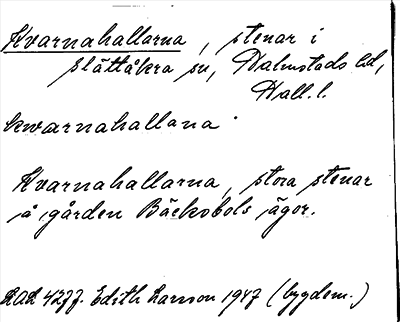 Kvarnahallarna, stenar i
Slättåkra sn, Halmstads hd,
Hall. l.
kwarnahallana
Kvarnahallarna, stora stenar
å gården Bäckobols ägor.
4277. Edith Larsson 1947 (bygdem.)